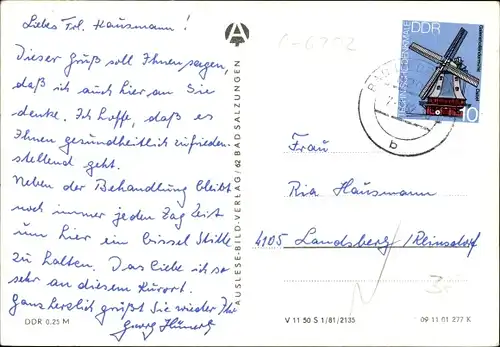 Liebes Frl. Hausmann!
Dieser Gruß soll Ihnen sagen,
daß ich auch hier an Sie
denke. Ich hoffe, daß es
Ihnen gesundheitlich zufrieden-
stellend geht.
Neben der Behandlung bleibt
noch immer jeden Tag Zeit
um hier ein bissel Stille
zu halten. Das liebe ich so
sehr an diesem Kurort.
Ganz herzlich grüßt Sie wieder Ihr
Georg
DDR 0,25 M
A
AUSLESE-BILD-VERLAG / 62 BAD SALZUNGEN
DDR
TECHNISCHE DENKMALE
10
b
Frau
Ria Hausmann
4105 Landsberg/Reinsdorf
V 11 50 S 1/81/2135
09 11 01 277 K